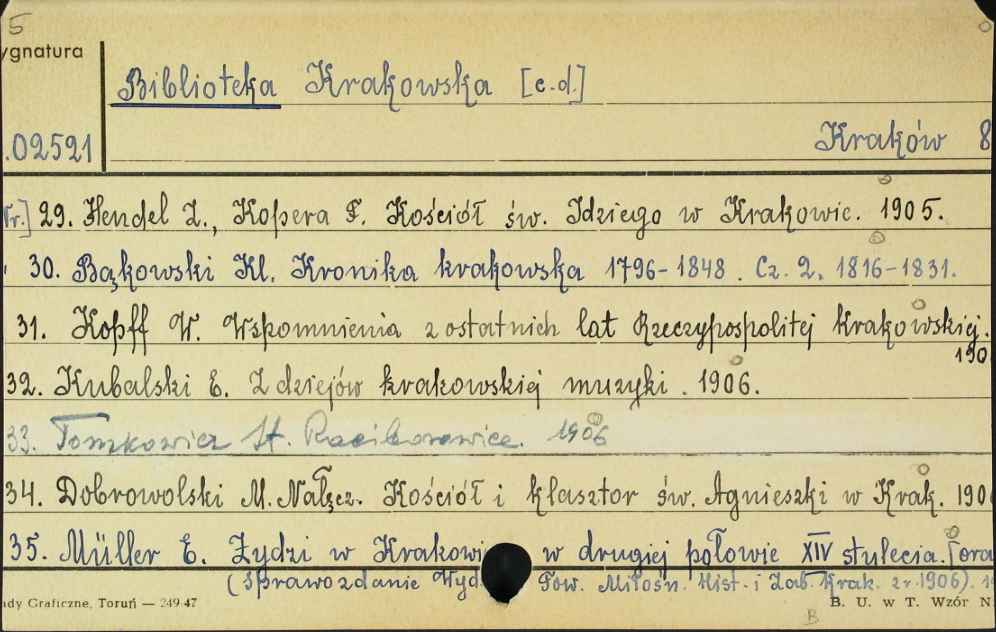 5
ygnatura
Biblioteka Krakowska [c.d.]
.02521
Kraków 8
Nr.] 29. Hendel Z., Kopera F. Kościół św. Idziego w Krakowie. 1905.
30. Bąkowski Kl. Kronika krakowska 1796-1848. Cz. 2. 1816-1831.
31. Kopff W. Wspomnienia z ostatnich lat Rzeczypospolitej krakowskiej.
190
32. Kubalski E. Z dziejów krakowskiej muzyki. 1906.
33. Tomkowicz St. Raciborowice. 1906
34. Dobrowolski M. Nałęcz. Kościół i klasztor św. Agnieszki w Krak. 190
35. Müller E. Żydzi w Krakowi w drugiej połowie XIV stulecia.
(Sprawozdanie Wyd. Tow. Miłośn. Hist. i Zab. Krak. z r. 1906).
ady Graficzne, Toruń — 249 47
B. U. w T. Wzór N
B